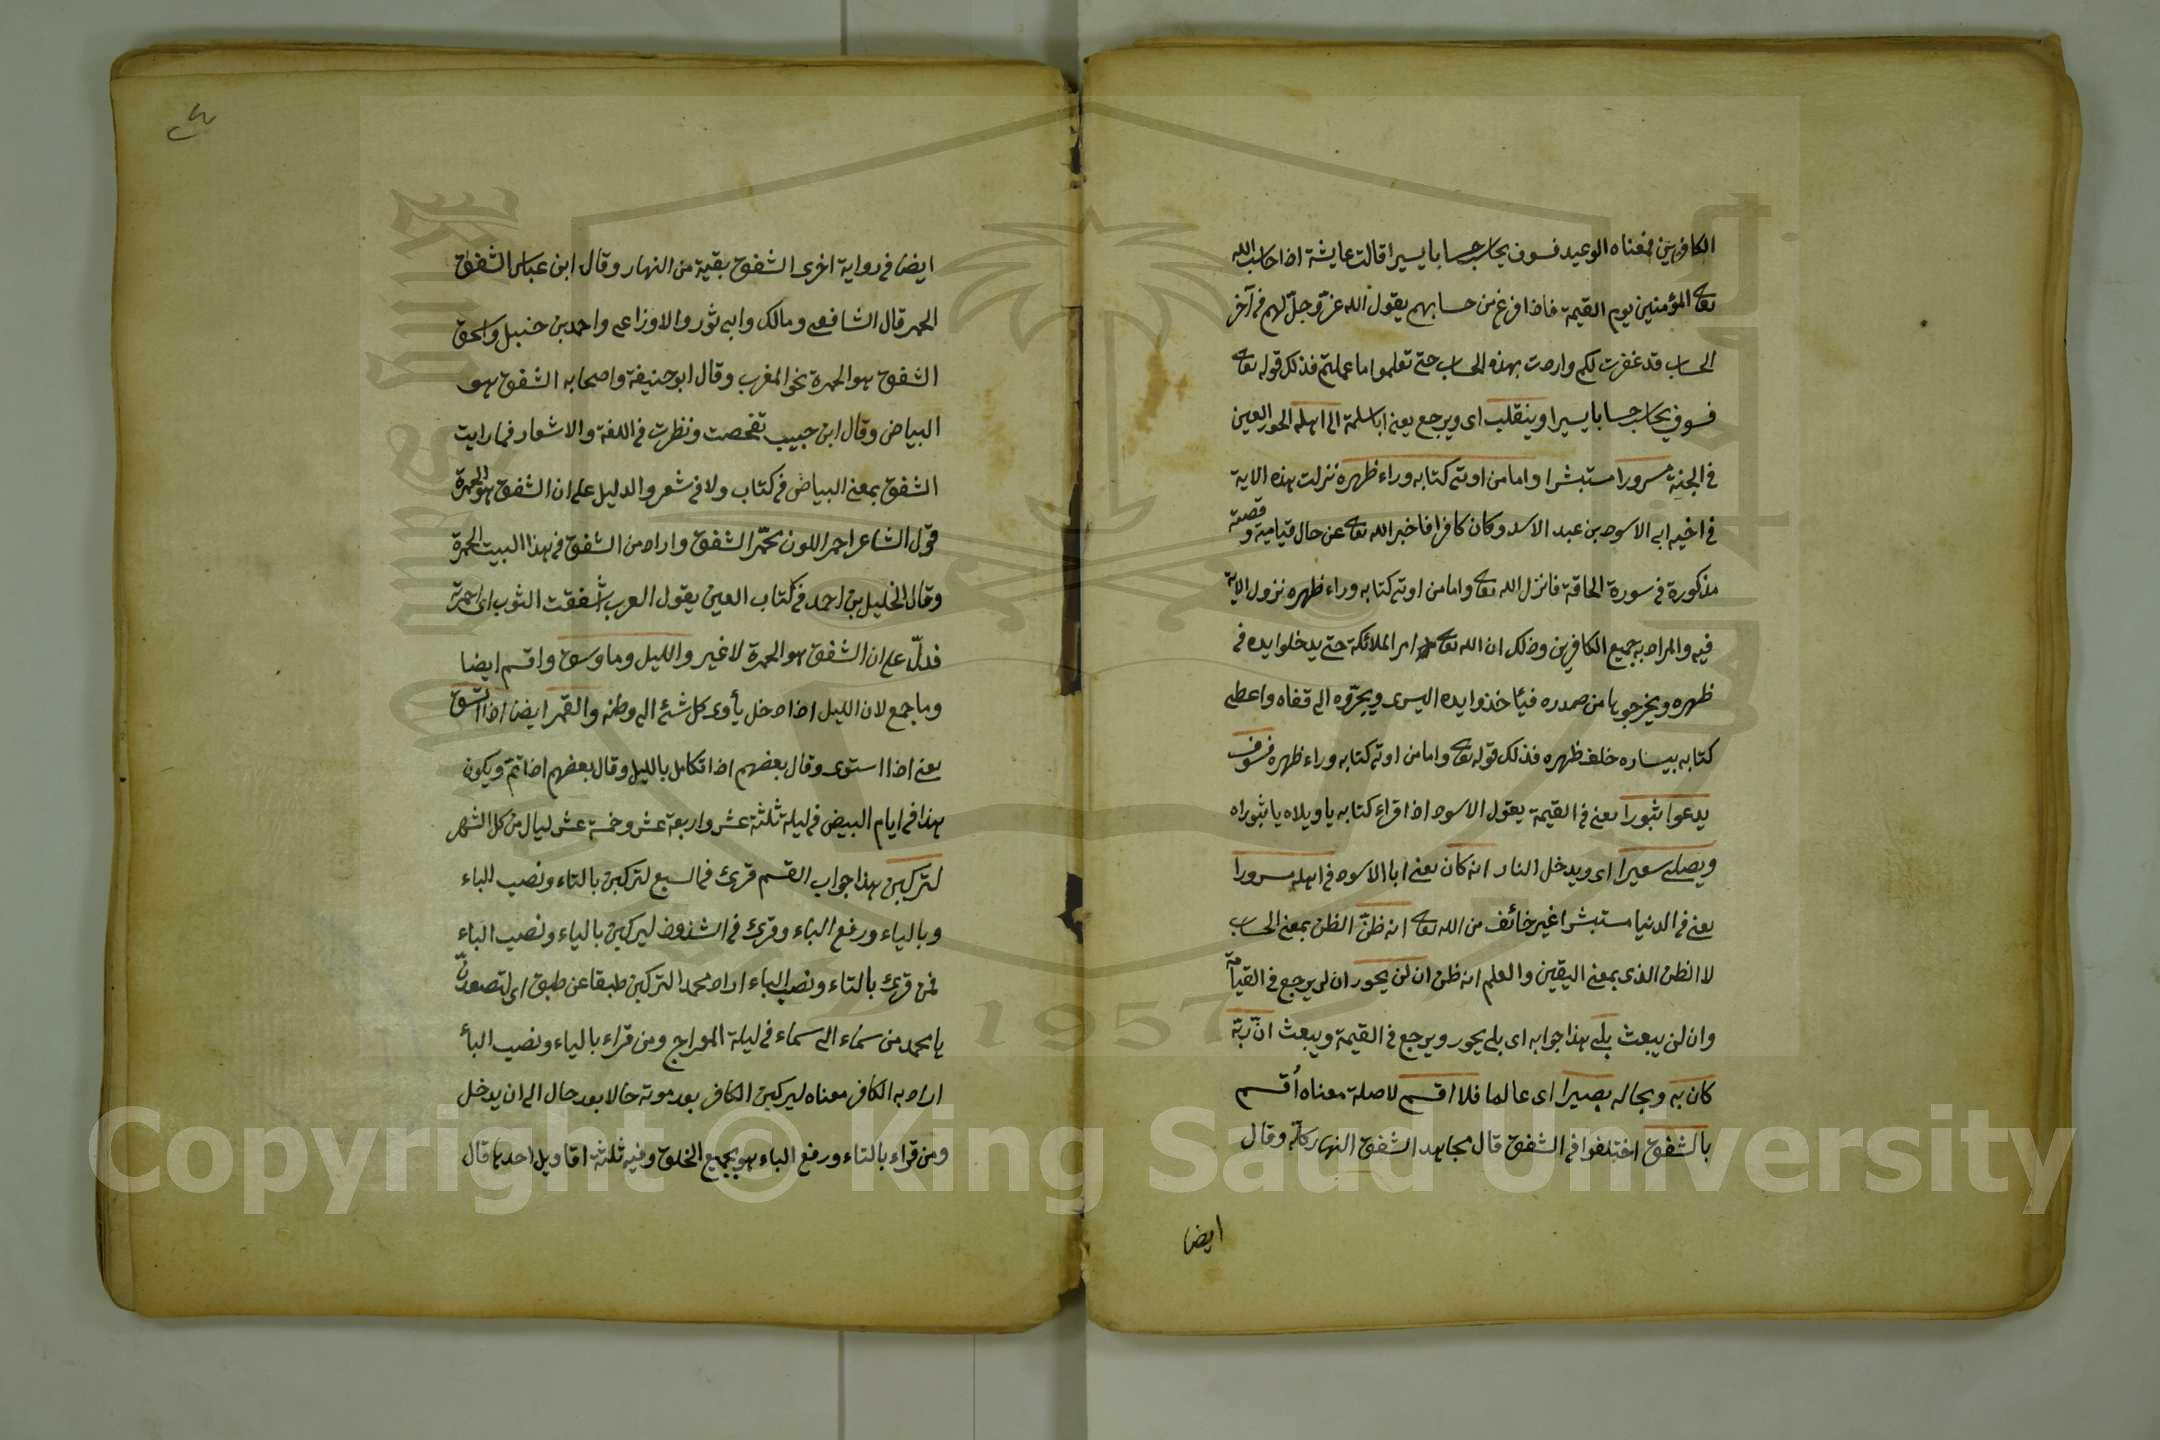 الكافرين فمعناه الوعيد فسوف يحاسب حسابا يسيرا قالت عايشة اذا حاسب الله
تعالى المؤمنين يوم القيمة فاذا فرغ من حسابهم يقول الله عزّ وجلّ لهم في آخر
الحساب قد غفرت لكم واردت بهذه الحساب حتى تعلموا ما عملتم فذلك قوله تعالى
فسوف يحاسب حسابا يسيرا وينقلب اى ويرجع يعنى اباسلمة الى اهله الحور العين
في الجنة مسرورا مستبشرا واما من اوتى كتابه وراء ظهره نزلت هذه الاية
في اخيه ابى الاسود بن عبد الاسد وكان كافرا فاخبر الله تعالى عن حال قيامية وقصته
مذكورة في سورة الحاقة فانزل الله تعالى واما من اوتى كتابه وراء ظهره نزول الاية
فيه والمراد به جميع الكافرين وذلك ان الله تعالى امر الملائكة حتى يدخلوا يده في
ظهره ويخرجوها من صدره فيأخذوا يده اليسرى ويجرّوه الى قفاه واعطى
كتابه بيساره خلف ظهره فذلك قوله تعالى واما من اوتى كتابه وراء ظهره فسوف
يدعوا ثبورا يعنى في القيمة يقول الاسود اذا قراء كتابه يا ويلاه يا ثبوراه
ويصلى سعيرا اى ويدخل النار انه كان يعنى ابا الاسود في اهله مسرورا
يعنى في الدنيا مستبشرا غير خائف من الله تعالى انه ظنّ الظن بمعنى الحساب
لا الظن الذى بمعنى اليقين والعلم انه ظن ان لن يحور ان لن يرجع في القيامة
وان لن يبعث بلى هذا جوابه اى بلى يحور ويرجع في القيمة ويبعث انّ ربّه
كان به وبحاله بصيرا اى عالما فلا اقسم لا صلة معناه أقسم
بالشفق اختلفوا في الشفق قال مجاهد الشفق النهار كلّه وقال
ايضا
ايضا في رواية اخرى الشفق بقية من النهار وقال ابن عباس الشفق
الحمر قال الشافعى ومالك وابى ثور والاوزاعى واحمد بن حنبل واسحق
الشفق هو الحمرة نحو المغرب وقال ابو حنيفة واصحابه الشفق هو
البياض وقال ابن حبيب تفحصت ونظرت في اللغة والاشعار فما رايت
الشفق بمعنى البياض في كتاب ولا في شعر والدليل على ان الشفق هو الحمرة
قول الشاعر احمر اللون محمّر الشفق واراد من الشفق في هذا البيت الحمرة
وقال الخليل بن احمد في كتاب العين يقول العرب شفقت الثوب اى احمرته
فدلّ على ان الشفق هو الحمرة لا غير والليل وما وسق واقسم ايضا
وما جمع لان الليل اذا دخل يأوى كل شئ الى وطنه والقمر ايضا اذا اتسق
يعنى اذا استوى وقال بعضهم اذا تكامل بالليل وقال بعضهم اذا تمّ ويكون
هذا في ايام البيض في ليلة ثلثة عشر واربعة عشر وخمسة عشر ليال من كل الشهر
لتركبن هذا جواب القسم قرئ في السبع لتركبن بالتاء ونصب الباء
وبالياء ورفع الباء وقرئ في الشذوذ ليركبن بالياء ونصب الباء
فمن قرئ بالتاء ونصب الباء اراد محمد التركبن طبقا عن طبق اى لتصعدنّ
يا محمد من سماء الى سماء في ليلة المعراج ومن قراء بالياء ونصب البأ
اراد به الكافر معناه ليركبن الكافر بعد موته حالا بعد حال الى ان يدخل
ومن قراء بالتاء ورفع الباء هو بجميع الخلق وفيه ثلثة اقاويل احدها قال
Copyright © King Saud University
1957